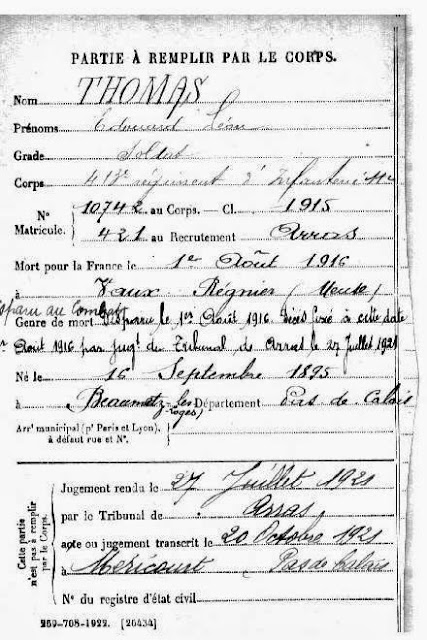 PARTIE À REMPLIR PAR LE CORPS.
Nom THOMAS
Prénoms Edouard Léon
Grade Soldat
Corps 418e régiment d'Infanterie
Nº Matricule. { 10742 au Corps. — Cl. 1915
421 au Recrutement Arras
Mort pour la France le 1er Août 1916
à Vaux Régnier (Meuse)
Disparu au Combat
Genre de mort Disparu le 1er Août 1916. Décès fixé à cette date
Août 1916 par jugt du Tribunal de Arras le 27 Juillet 1921
Né le 16 Septembre 1895
à Beaumetz-les-Loges Département Pas de Calais
Arrt municipal (pr Paris et Lyon), à défaut rue et Nº. }
Cette partie n'est pas à remplir par le Corps.
Jugement rendu le 27 Juillet 1921
par le Tribunal de Arras
acte ou jugement transcrit le 20 Octobre 1921
à Méricourt Pas de Calais
Nº du registre d'état civil
269-708-1922. [26434]